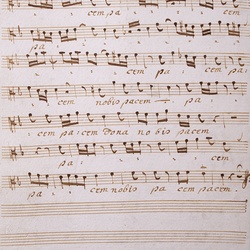 cem pa cem
pa
cem pa cem
cem nobis pacem pa
cem pa cem dona nobis pacem
pa cem
pa cem nobis pa cem pacem.